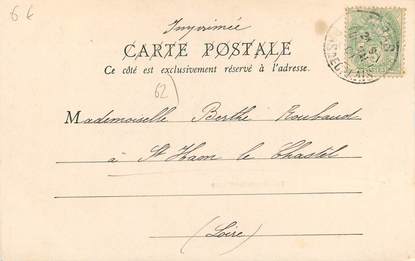 6 €
Imprimée
CARTE POSTALE
Ce côté est exclusivement réservé à l'adresse.
62
Mademoiselle Berthe Roubaud
à St Haon le Chastel
(Loire)